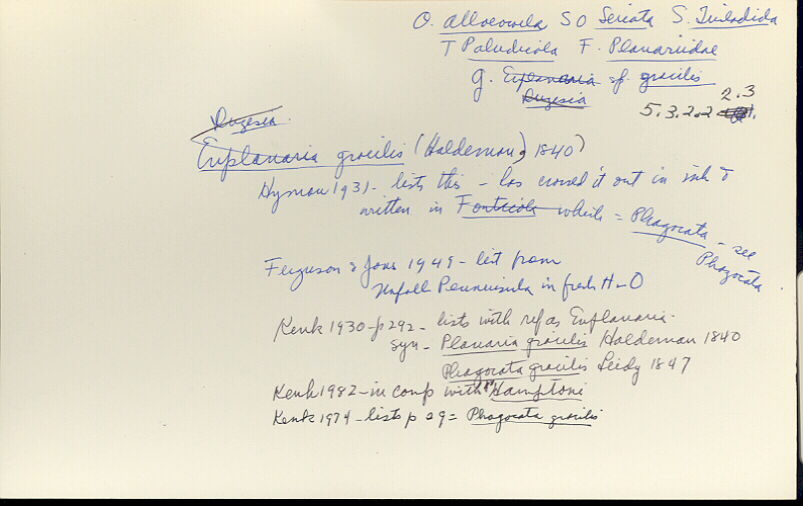 O. Alloeocoela SO Seriata S. Tricladida
T Paludicola F. Planariidae
g. Euplanaria sp. gracilis
Dugesia
2.3
5.3.2.2
Dugesia.
Euplanaria gracilis (Haldeman, 1840)
Hyman 1931 - lists this - has crossed it out in ink &
written in Fonticola which = Phagocata - see
Phagocata
Ferguson & Jones 1949 - list from
Norfolk Penninsula in fresh H-O
Kenk 1930 - p 292 - lists with ref as Euplanaria -
syn - Planaria gracilis Haldeman 1840
Phagocata gracilis Leidy 1847
Kenk 1982 - in comp with "Hamptoni
Kenk 1974 - lists p 29 = Phagocata gracilis